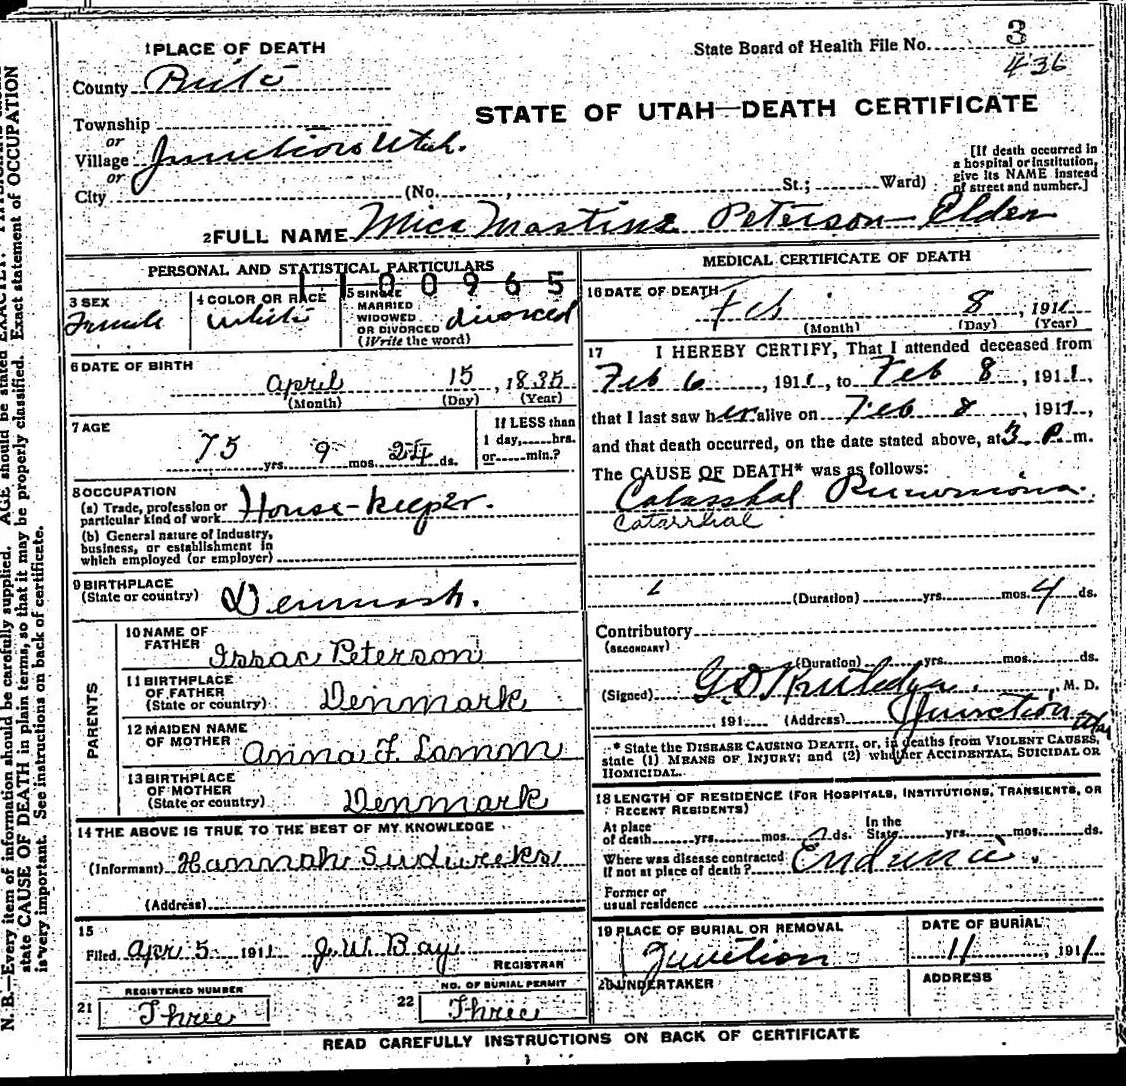 3
State Board of Health File No.
436
1 PLACE OF DEATH
County
STATE OF UTAH—DEATH CERTIFICATE
Township
or
Village Junction Utah.
or
City (No. , St.; Ward)
[If death occurred in
a hospital or institution,
give its NAME instead
of street and number.]
2 FULL NAME Mica Martina Peterson Elder
PERSONAL AND STATISTICAL PARTICULARS
1100965
3 SEX
Female
4 COLOR OR RACE
White
5 SINGLE
MARRIED
WIDOWED
OR DIVORCED divorced
(Write the word)
6 DATE OF BIRTH
April 15, 1835
(Month) (Day) (Year)
7 AGE
75 yrs. 9 mos. 24 ds.
If LESS than
1 day, hrs.
or min.?
8 OCCUPATION
(a) Trade, profession or
particular kind of work House-keeper.
(b) General nature of Industry,
business, or establishment in
which employed (or employer)
9 BIRTHPLACE
(State or country) Denmark.
PARENTS
10 NAME OF
FATHER Issac Peterson
11 BIRTHPLACE
OF FATHER
(State or country) Denmark
12 MAIDEN NAME
OF MOTHER Anna F. Lamm
13 BIRTHPLACE
OF MOTHER
(State or country) Denmark
14 THE ABOVE IS TRUE TO THE BEST OF MY KNOWLEDGE
(Informant) Hannah Sudweeks
(Address)
15
Filed Apr 5 1911 J. W. Bay
REGISTRAR
REGISTERED NUMBER
21 Three
NO. OF BURIAL PERMIT
22 Three
MEDICAL CERTIFICATE OF DEATH
16 DATE OF DEATH
Feb 8, 1911
(Month) (Day) (Year)
17 I HEREBY CERTIFY, That I attended deceased from
Feb 6, 1911, to Feb 8, 1911,
that I last saw her alive on Feb 8, 1911,
and that death occurred, on the date stated above, at 3 P. m.
The CAUSE OF DEATH* was as follows:
Catarrhal Pneumonia.
Catarrhal
(Duration) yrs. mos. 4 ds.
Contributory
(SECONDARY)
(Duration) yrs. mos. ds.
(Signed) G D Rutledge, M. D.
, 191 (Address) Junction Utah
* State the DISEASE CAUSING DEATH, or, in deaths from VIOLENT CAUSES,
state (1) MEANS OF INJURY; and (2) whether ACCIDENTAL, SUICIDAL OR
HOMICIDAL.
18 LENGTH OF RESIDENCE (FOR HOSPITALS, INSTITUTIONS, TRANSIENTS, OR
RECENT RESIDENTS)
At place
of death yrs. mos. ds.
In the
State yrs. mos. ds.
Where was disease contracted
If not at place of death?
Former or
usual residence
19 PLACE OF BURIAL OR REMOVAL
Junction
DATE OF BURIAL
11, 1911
20 UNDERTAKER
ADDRESS
READ CAREFULLY INSTRUCTIONS ON BACK OF CERTIFICATE
N. B.—Every item of information should be carefully supplied. AGE should be stated EXACTLY.
state CAUSE OF DEATH in plain terms, so that it may be properly classified. Exact statement of OCCUPATION
is very important. See instructions on back of certificate.